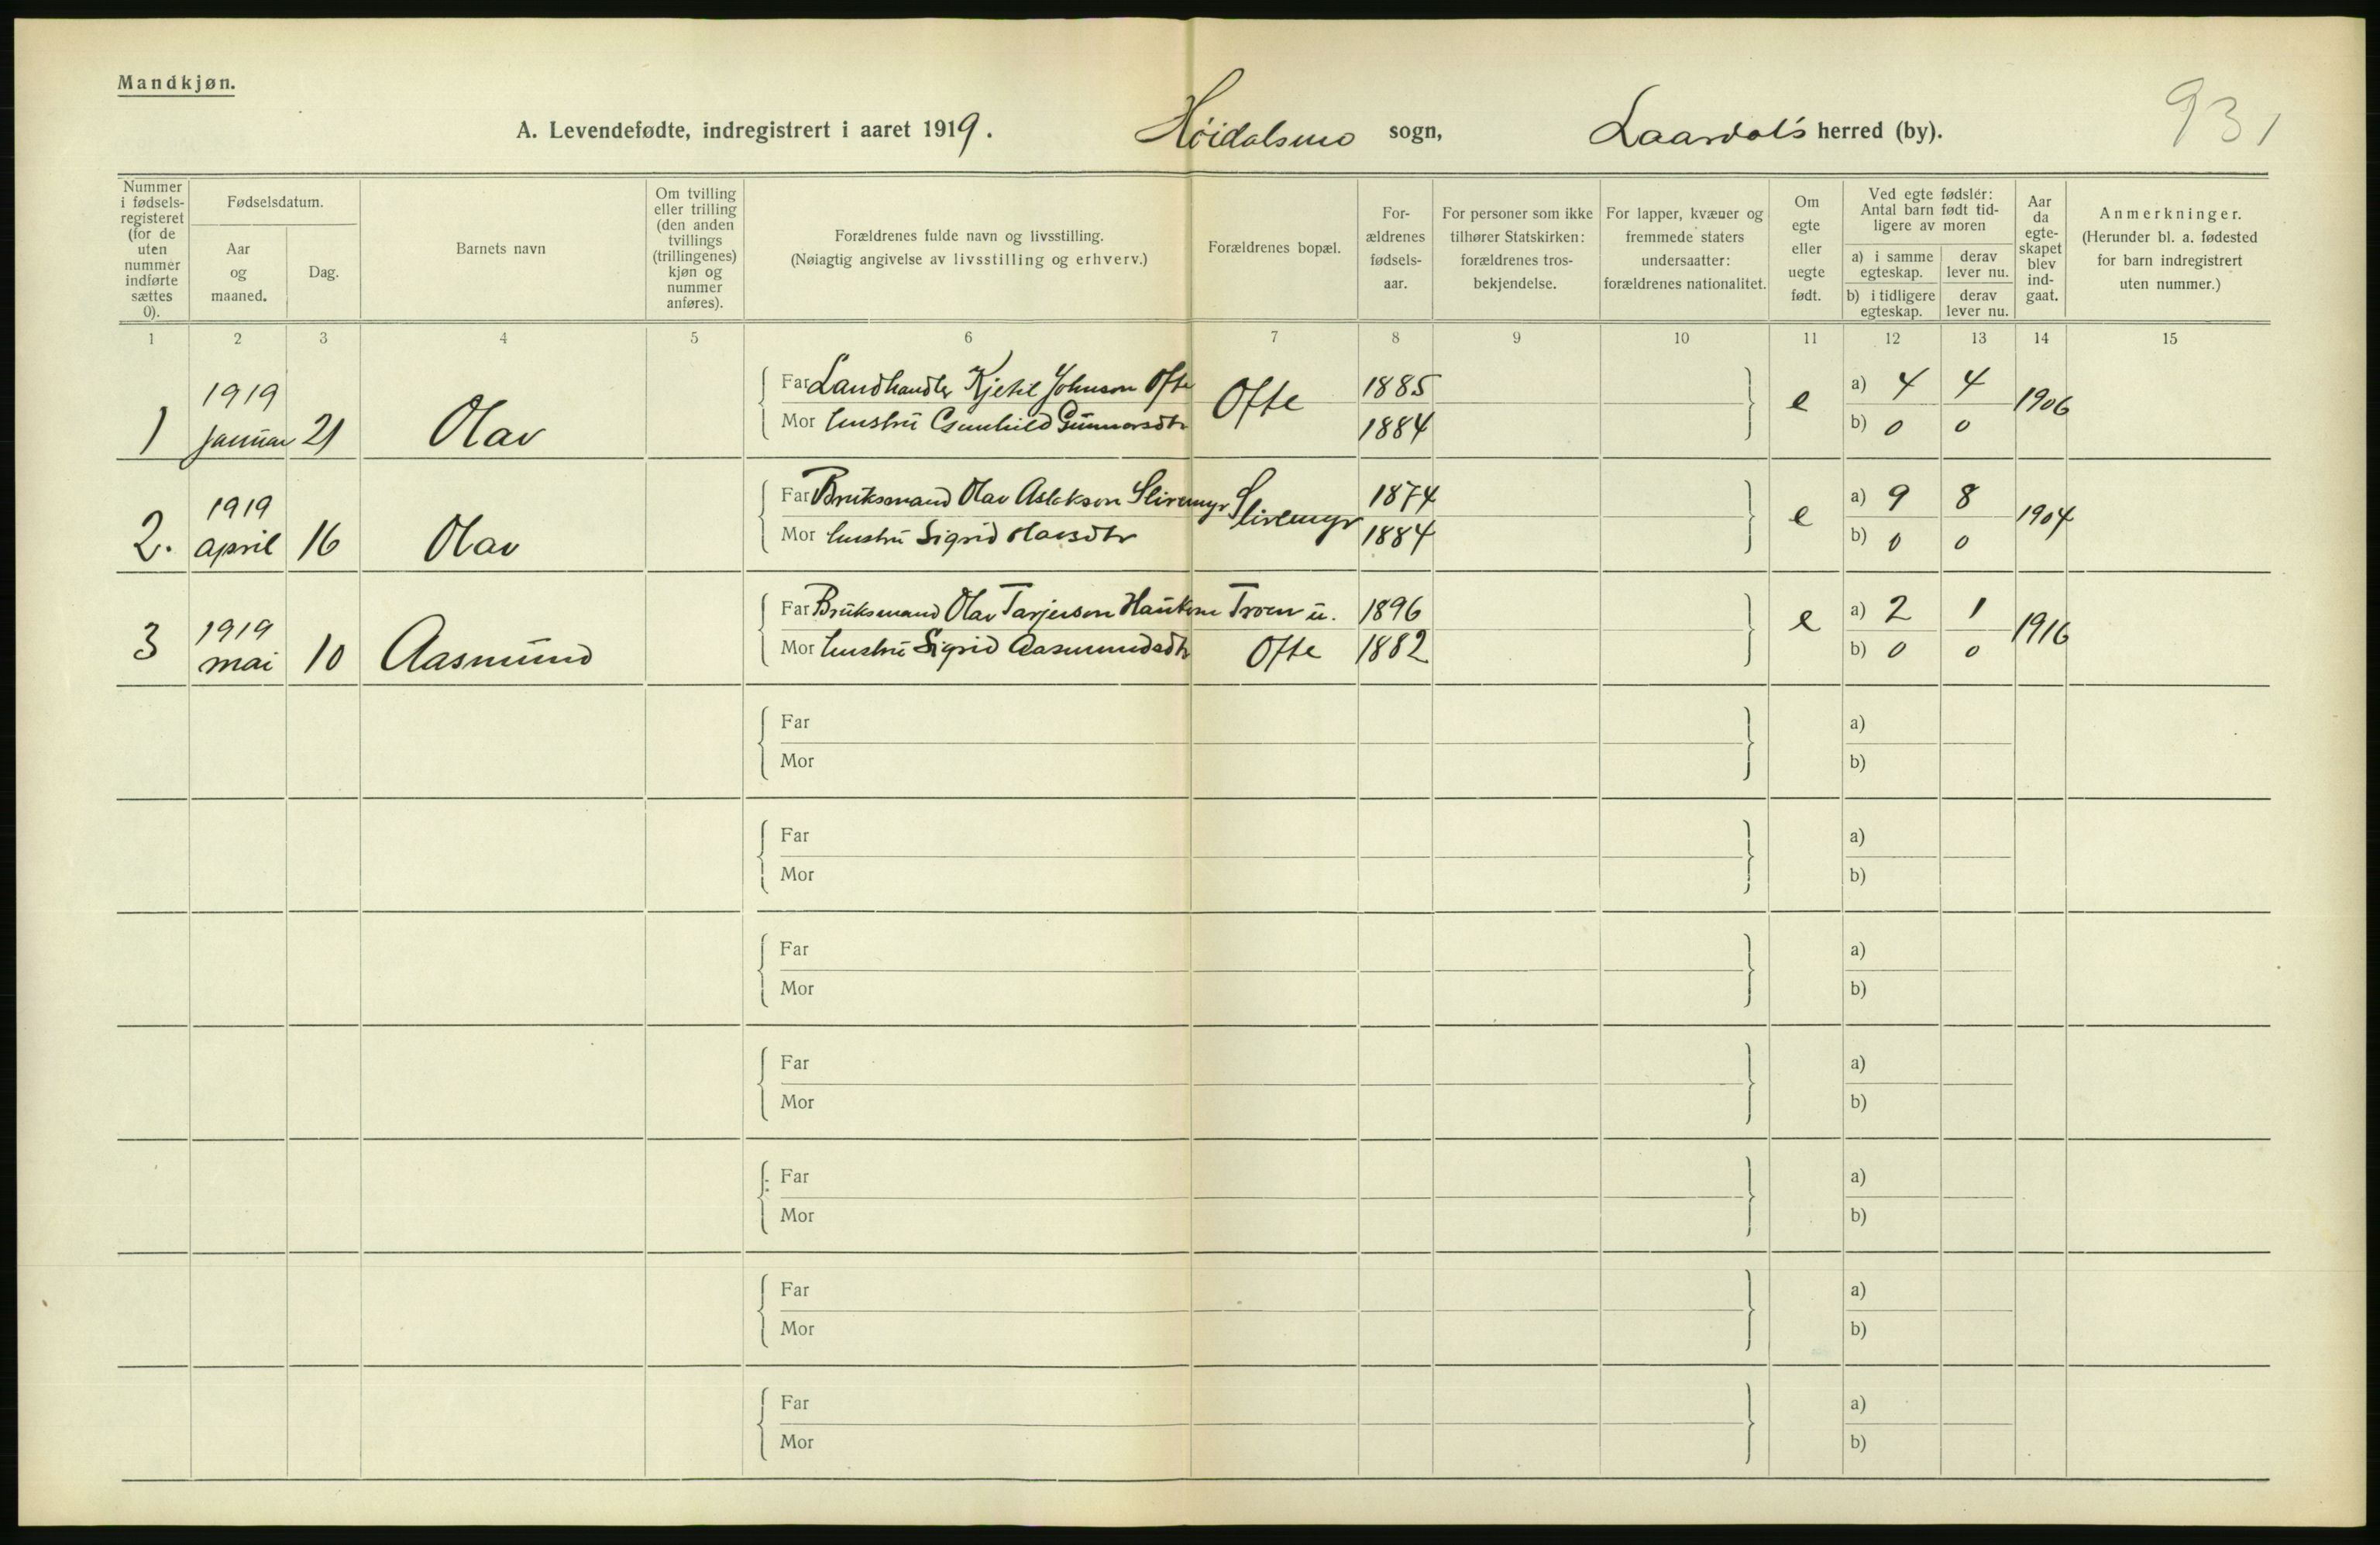 Mandkjøn.
A. Levendefødte, indregistrert i aaret 1919. Høidalsmo sogn, Laardals herred (by).
931
Nummer i fødselsregisteret (for de uten nummer indførte sættes 0).
Fødselsdatum.
Aar og maaned.
Dag.
Barnets navn
Om tvilling eller trilling (den anden tvillings (trillingenes) kjøn og nummer anføres).
Forældrenes fulde navn og livsstilling.
(Nøiagtig angivelse av livsstilling og erhverv.)
Forældrenes bopæl.
For-ældrenes fødsels-aar.
For personer som ikke tilhører Statskirken: forældrenes tros-bekjendelse.
For lapper, kvæner og fremmede staters undersaatter: forældrenes nationalitet.
Om egte eller uegte født.
Ved egte fødsler: Antal barn født tid-ligere av moren
a) i samme egteskap.
derav lever nu.
b) i tidligere egteskap.
derav lever nu.
Aar da egte-skapet blev ind-gaat.
Anmerkninger.
(Herunder bl. a. fødested for barn indregistrert uten nummer.)
1 2 3 4 5 6 7 8 9 10 11 12 13 14 15
1 1919 januar 21 Olav
Far Landhandler Kjetil Johnson Ofte Ofte 1885 e a) 4 4 1906
Mor hustru Gunhild Gunnarsdtr 1884 b) 0 0
2. 1919 april 16 Olav
Far Bruksmand Olav Aslakson Sliremyr Sliremyr 1874 e a) 9 8 1904
Mor hustru Sigrid Olavsdtr 1884 b) 0 0
3 1919 mai 10 Aasmund
Far Bruksmand Olav Tarjeison Haukom Troen u. 1896 e a) 2 1 1916
Mor hustru Sigrid Aasmundsdtr Ofte 1882 b) 0 0
Far a)
Mor b)
Far a)
Mor b)
Far a)
Mor b)
Far a)
Mor b)
Far a)
Mor b)
Far a)
Mor b)
Far a)
Mor b)